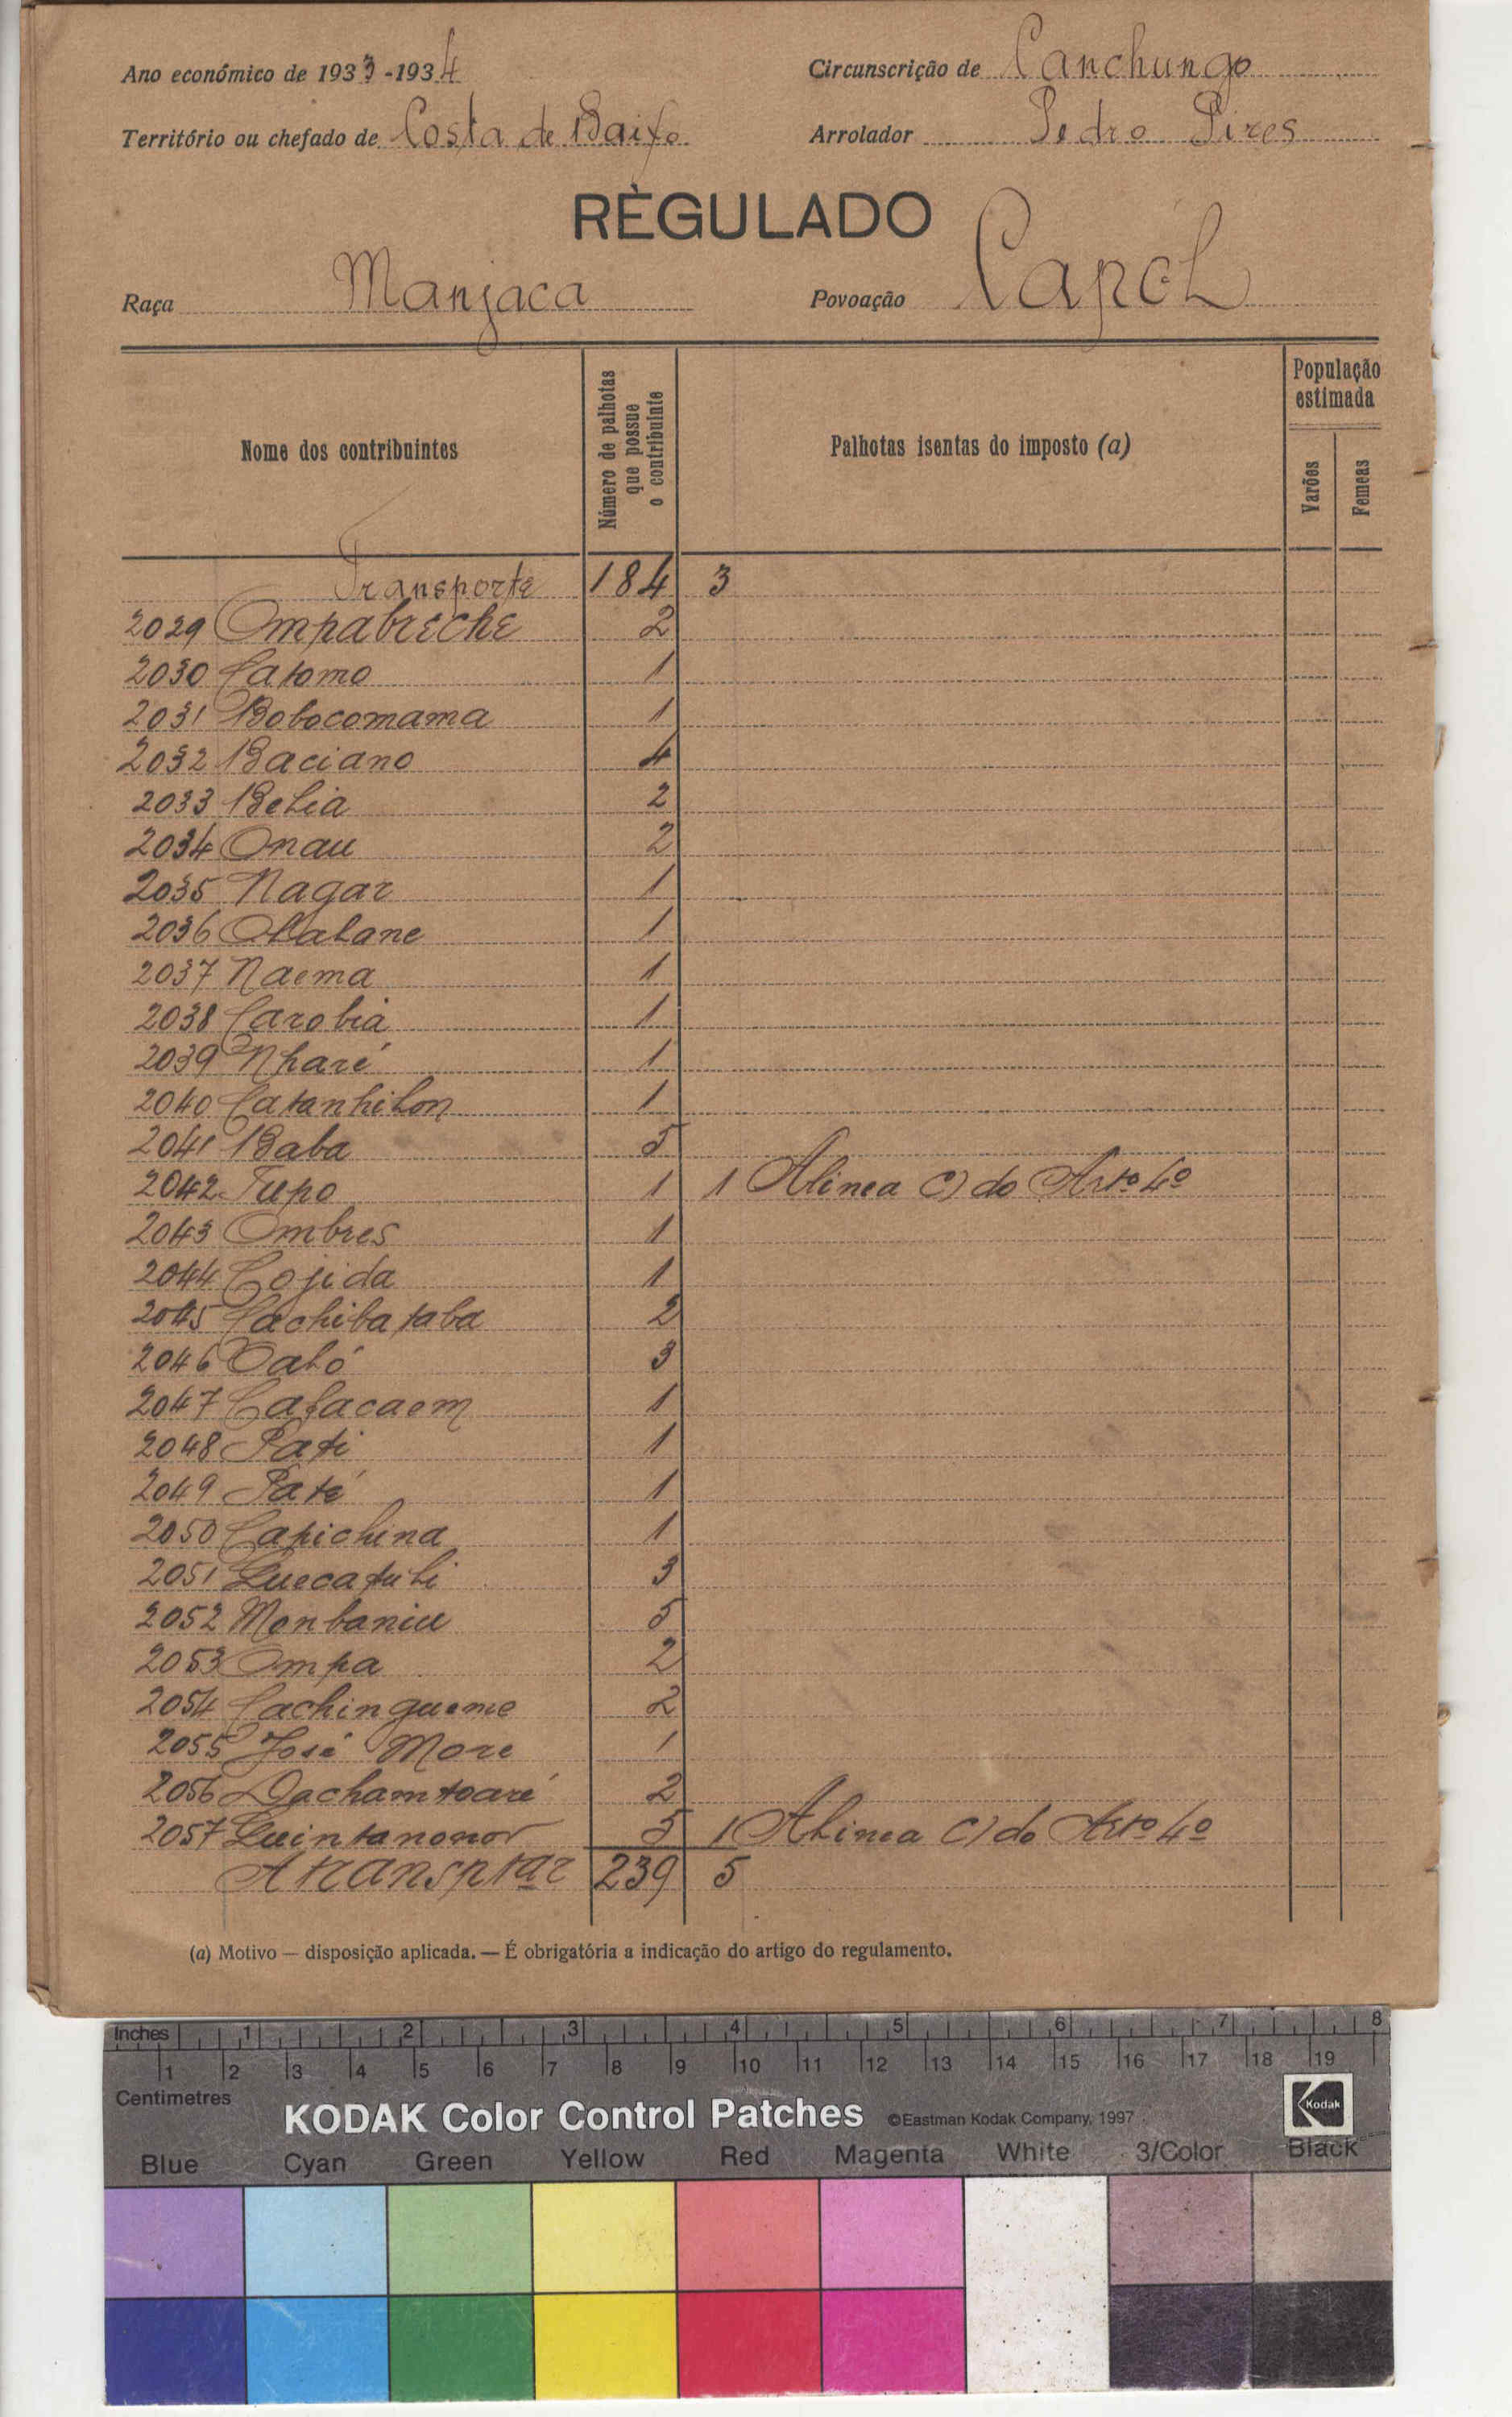 Ano económico de 1933-1934
Circunscrição de Canchungo
Território ou chefado de Costa de Baixo
Arrolador Pedro Pires
RÈGULADO
Raça Manjaca
Povoação Capol
Nome dos contribuintes
Número de palhotas que possue o contribuinte
Palhotas isentas do imposto (a)
População estimada
Varões
Femeas
Transporte 184 3
2029 Ompabreche 2
2030 Catomo 1
2031 Bobocomama 1
2032 Baciano 4
2033 Belia 2
2034 Onau 2
2035 Nagar 1
2036 Olalane 1
2037 Naema 1
2038 Carobia 1
2039 Nharé 1
2040 Catanhilon 1
2041 Baba 5
2042 Tupo 1 1 Alinea C) do Artº 4º
2043 Ombres 1
2044 Cojida 1
2045 Cachibataba 2
2046 Caló 3
2047 Cafacaem 1
2048 Pati 1
2049 Paté 1
2050 Capichina 1
2051 Quecatuli 3
2052 Monbaniu 5
2053 Ompa 2
2054 Cachingueme 2
2055 José More 1
2056 Dachamtoaré 2
2057 Quintanonor 5 1 Alinea C) do Artº 4º
A transptar 239 5
(a) Motivo — disposição aplicada. — É obrigatória a indicação do artigo do regulamento.
Inches 1 2 3 4 5 6 7 8
1 2 3 4 5 6 7 8 9 10 11 12 13 14 15 16 17 18 19
Centimetres
KODAK Color Control Patches ©Eastman Kodak Company, 1997 Kodak
Blue Cyan Green Yellow Red Magenta White 3/Color Black